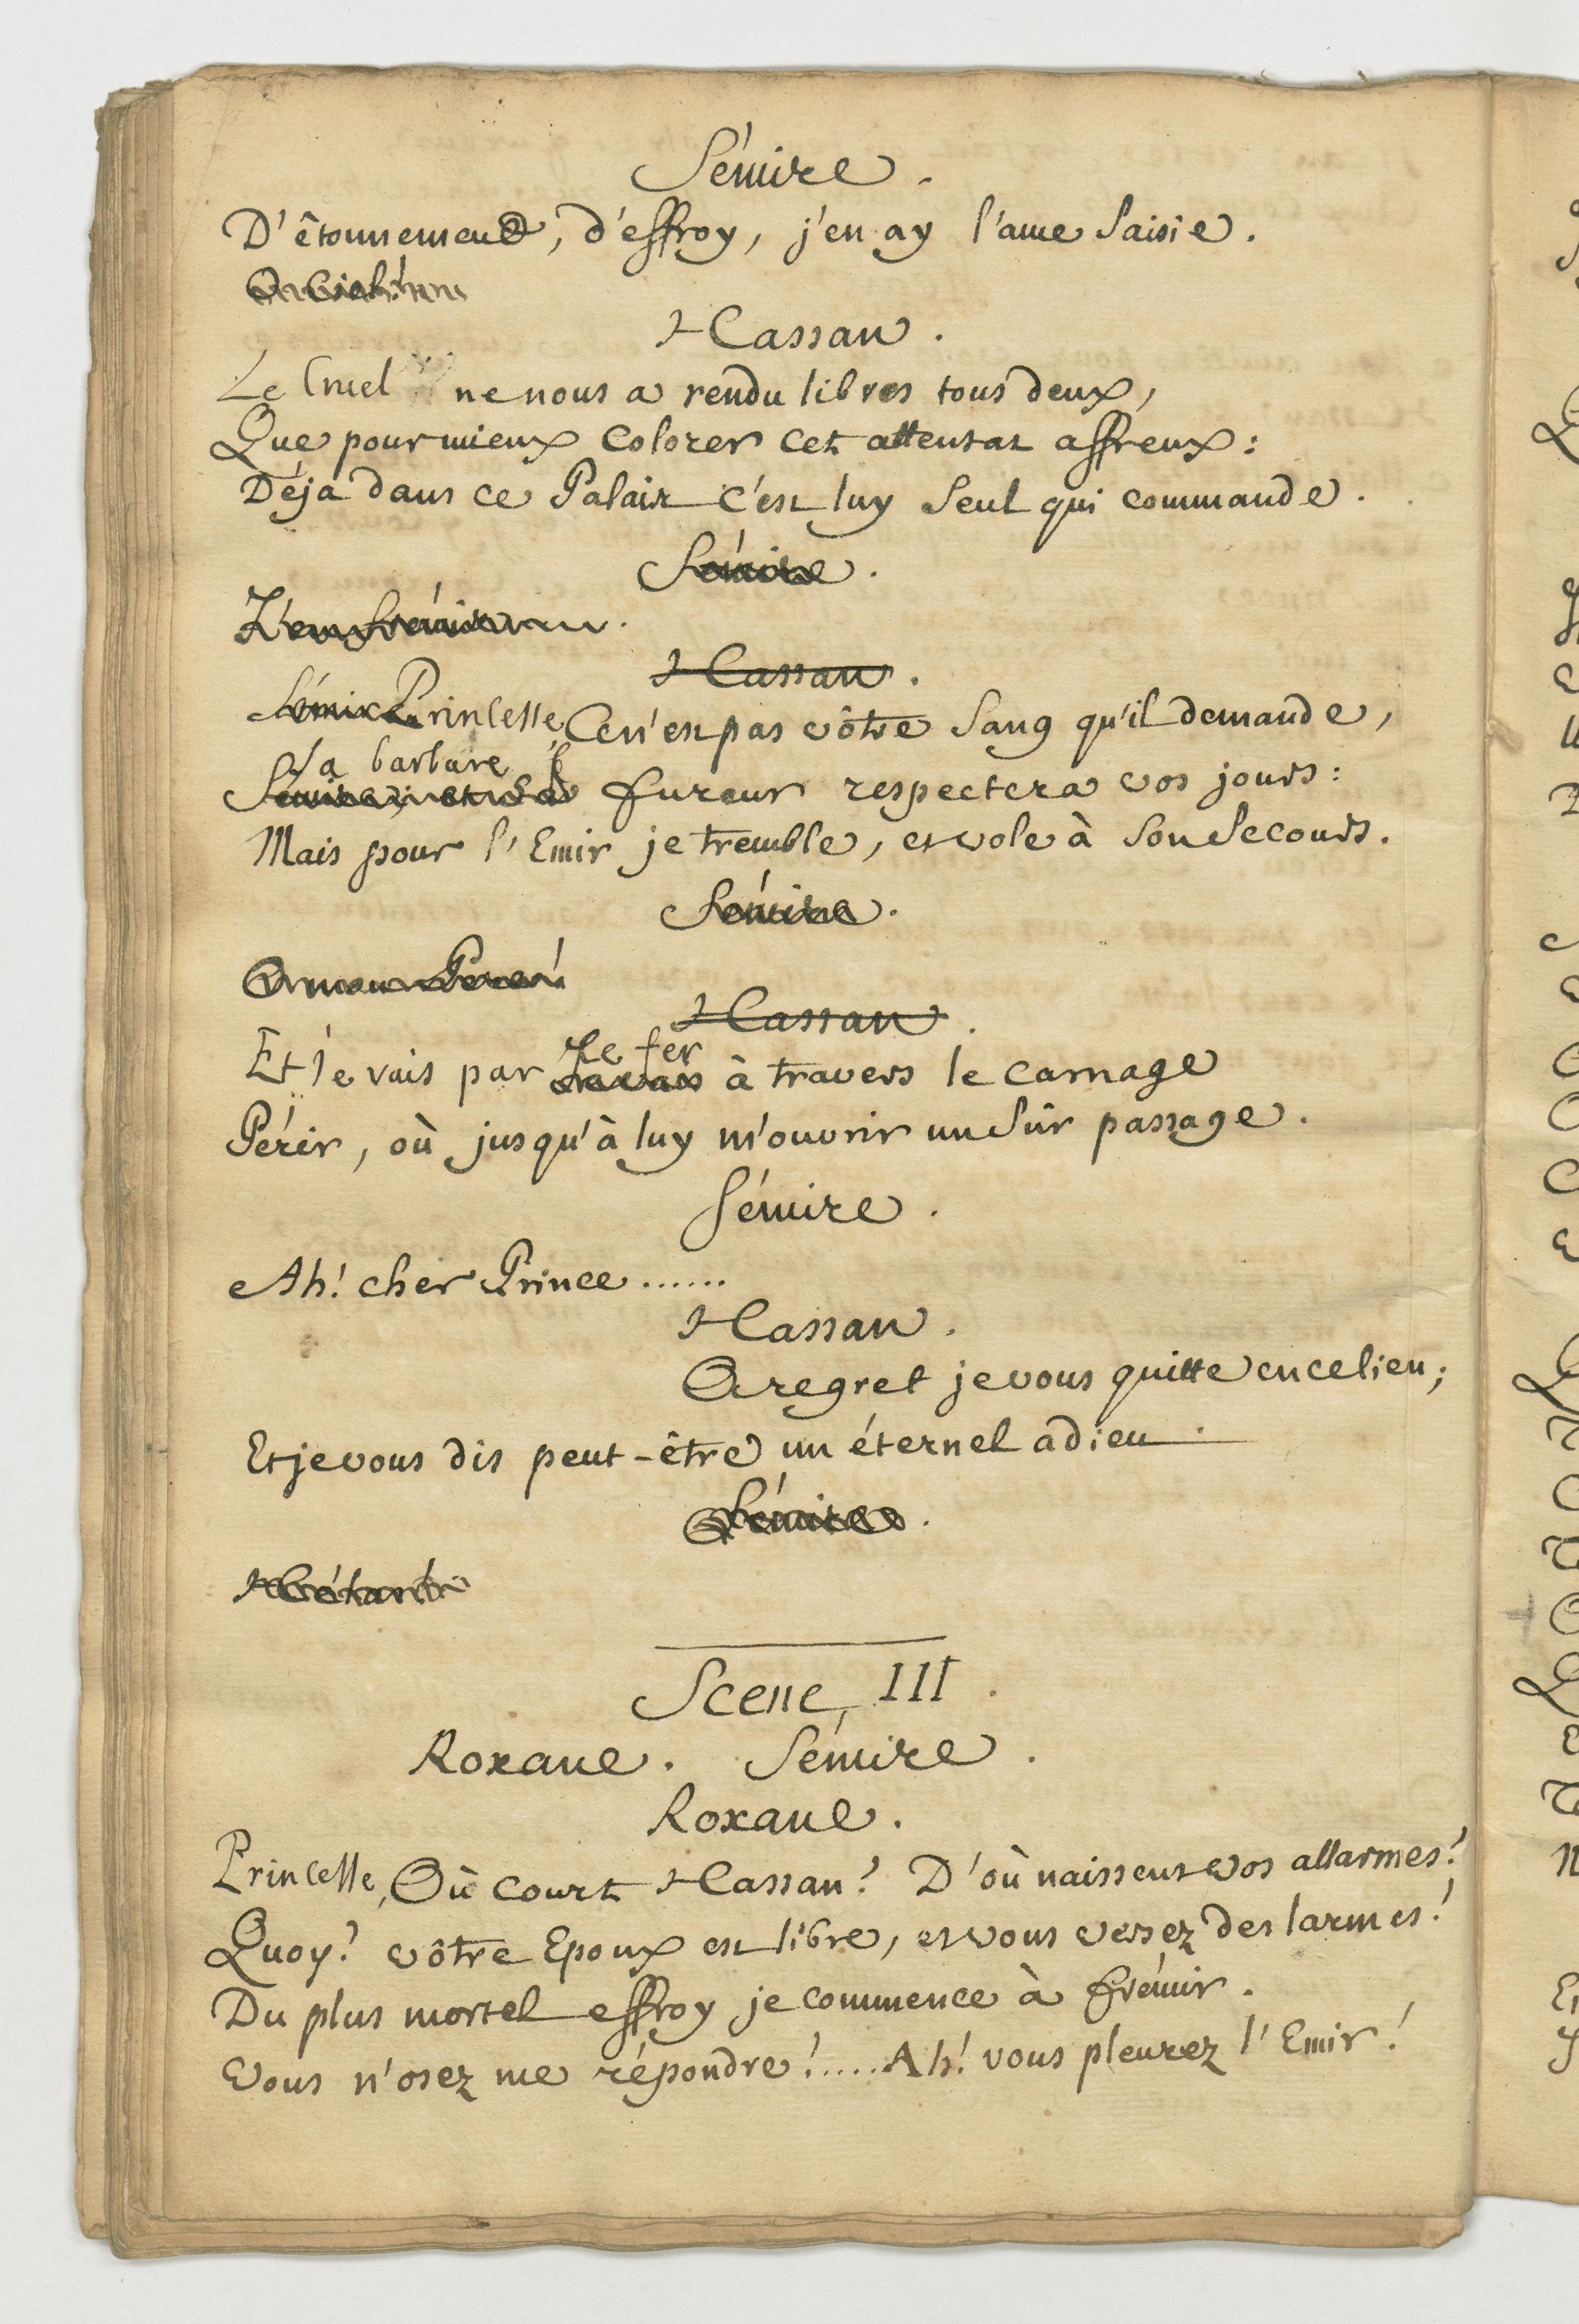 Sémire.
D'êtonnement, d'effroy, j'en ay l'ame saisie.
O Ciel!
Hassan.
Le Cruel ne nous a rendu libres tous deux,
Que pour mieux colorer cet attentat affreux:
Déja dans ce Palais c'est luy seul qui commande.
Sémire.
J'en frémis
Hassan.
Princesse, Ce n'est pas vôtre sang qu'il demande,
Sa barbare
Sémire, et sa fureur respectera vos jours:
Mais pour l'Emir je tremble, et vole à son secours.
Sémire.
O mon Pere!
Hassan.
le fer
Et je vais par à travers le carnage
Périr, où jusqu'à luy m'ouvrir un sûr passage.
Sémire.
Ah! cher Prince......
Hassan.
A regret je vous quitte en ce lieu;
Et je vous dis peut-être un éternel adieu.
Sémire.
Scene, III.
Roxane. Sémire.
Roxane.
Princesse, Où court Hassan? D'où naissent vos allarmes?
Quoy? vôtre Epoux est libre, et vous versez des larmes!
Du plus mortel effroy je commence à frémir.
Vous n'osez me répondre!..... Ah! vous pleurez l'Emir!